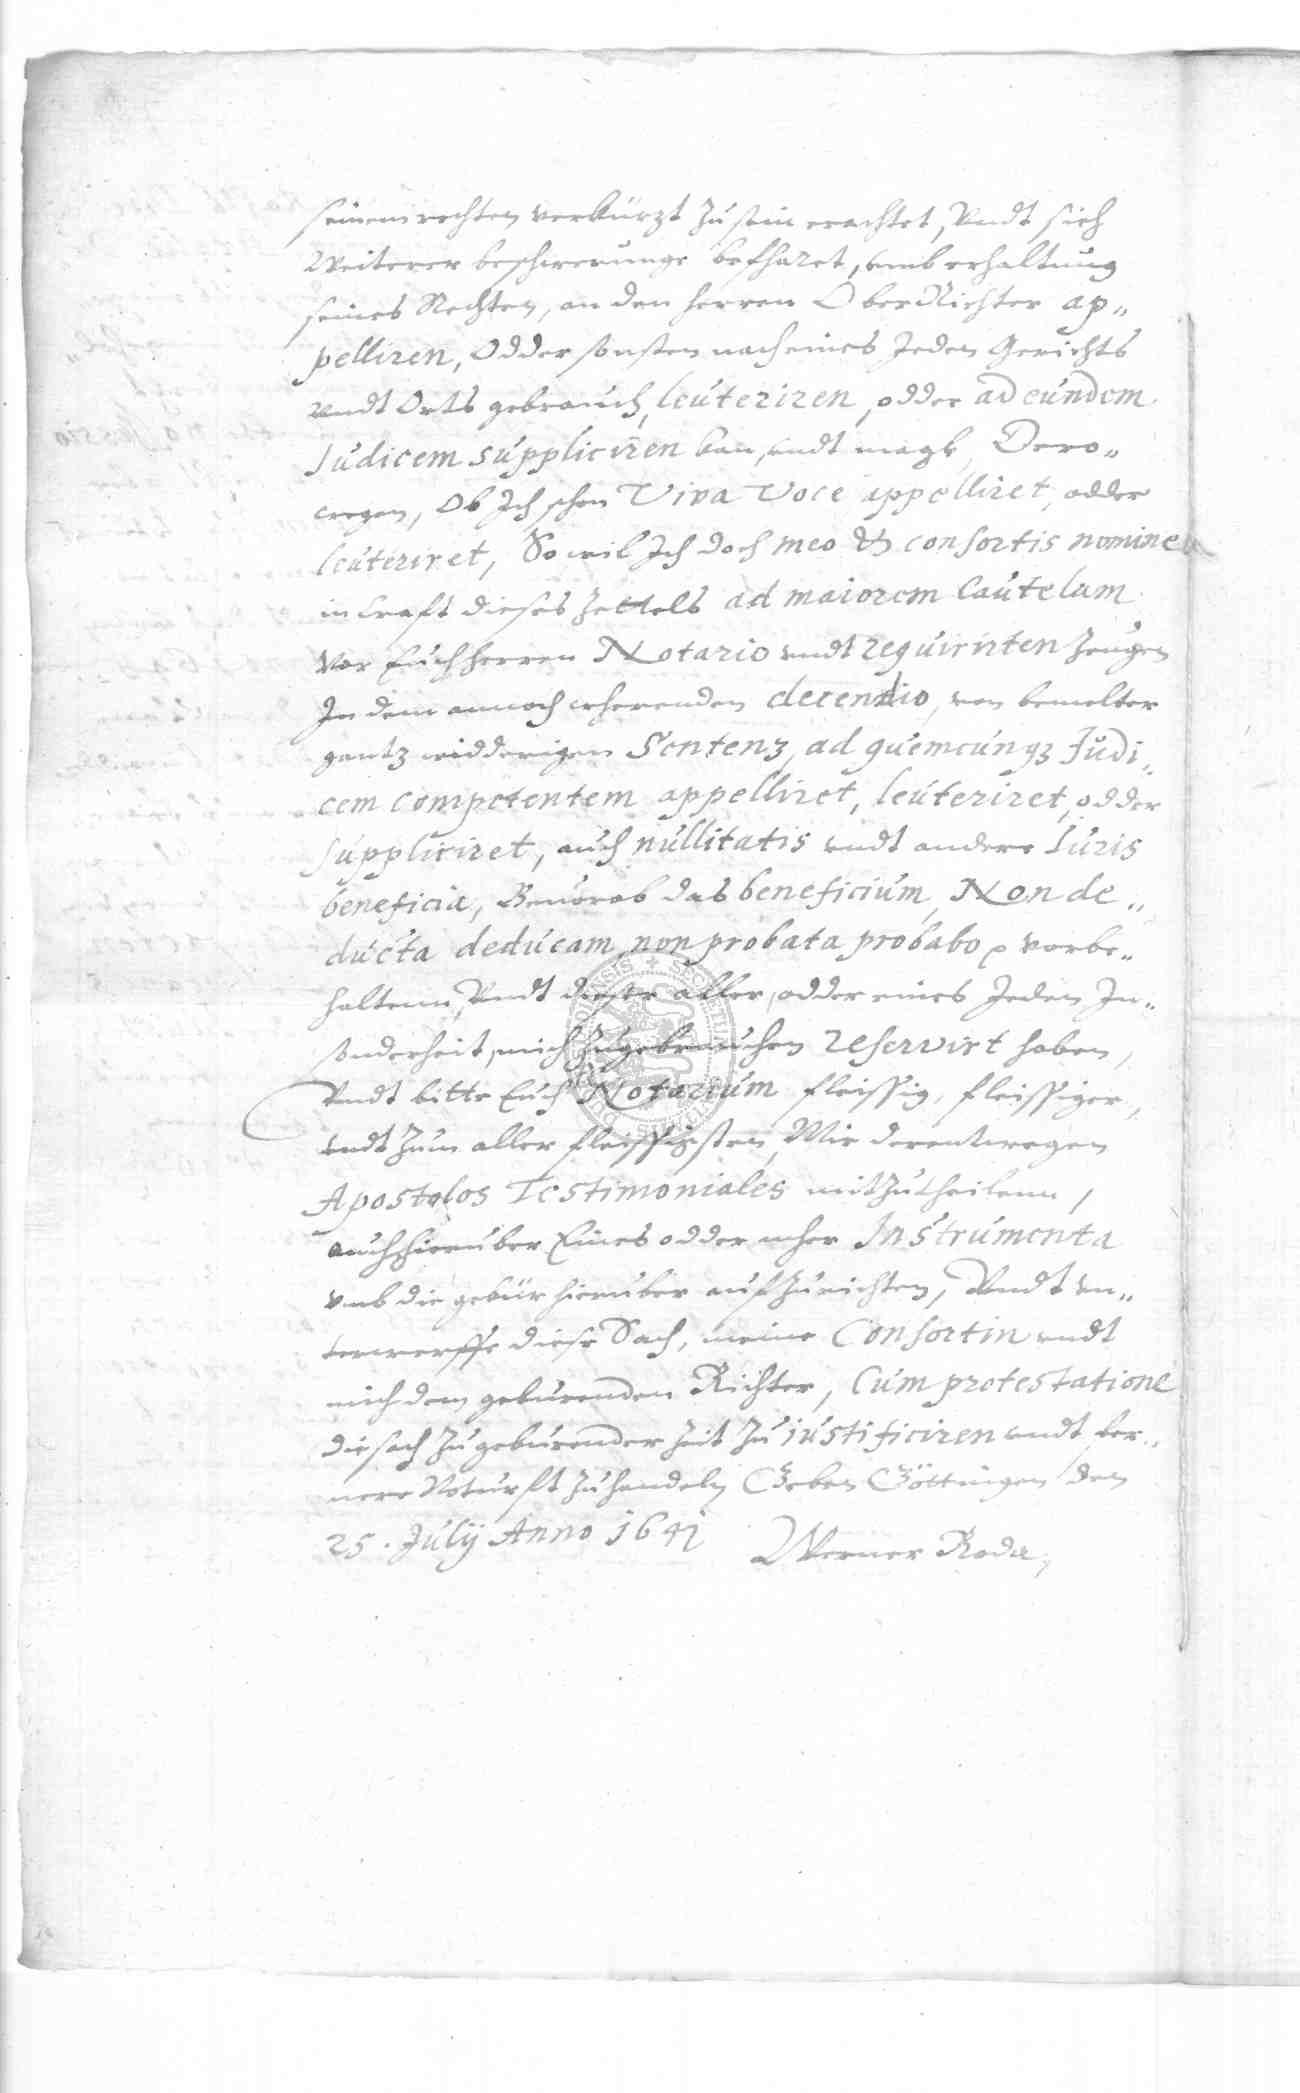 seinem rechten verkürzt zu sein erachtet, Vndt sich
Weiterer beschwerunge befharet, vmb erhaltung
seines Rechten, an den herren OberRichter ap„
pelliren, Odder sonsten nach eines Jeden Gerichts
vndt Orts gebrauch, leuteriren, odder ad eundem
Iudicem suppliciren kan, vndt magk, Dero„
wegen, Ob Ich schon Viva Voce appelliret, odder
leuteriret, So wil Ich doch meo & consortis nomine
in Craft dieses Zettels ad maiorem Cautelam
Vor Euch herren Notario vndt requirirten Zeugen
In dem annoch wherenden decendio, von bemelter
gantz widderigen Sentenz, ad quemcunq3 Judi„
cem competentem appelliret, leuteriret, odder
suppliciret, auch nullitatis vndt andere Iuris
beneficia, Beuorab das beneficium, Non de„
ducta deducam, non probata probabo vorbe„
haltenn, Vndt dieser aller, odder eines Jeden In„
sonderheit, mich zugebrauchen reservirt haben,
Vndt bitte Euch Notarium fleissig, fleissiger,
vndt zum aller fleissigsten, Mir derentwegen
Apostolos Testimoniales mitzutheilenn,
auch hieruber Eines odder mher Instrumenta
vmb die gebür hieruber aufzurichten, Vndt vn„
terwerffe diese Sach, meine Consortin vndt
mich dem geburenden Richter, Cum protestatione
die sach zu geburender Zeit zu iustificiren vndt fer„
nere Noturft zuhandeln Geben Göttingen den
25. Julij Anno 1641 Werner Roda